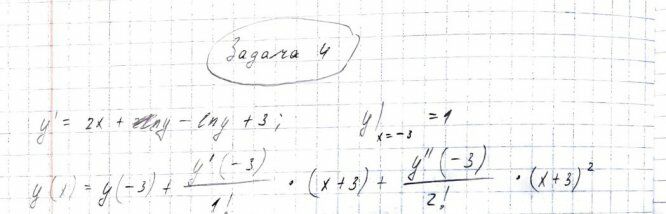 Задача 4
y' = 2x + ln y - ln y + 3; y|ₓ₌₋₃ = 1
y(x) = y(-3) + y'(-3)/1! · (x+3) + y''(-3)/2! · (x+3)²